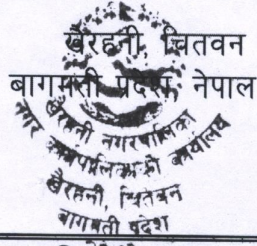 खैरहनी, चितवन
बागमती प्रदेश, नेपाल
खैरहनी नगरपालिका
नगर कार्यपालिकाको कार्यालय
खैरहनी, चितवन
बागमती प्रदेश